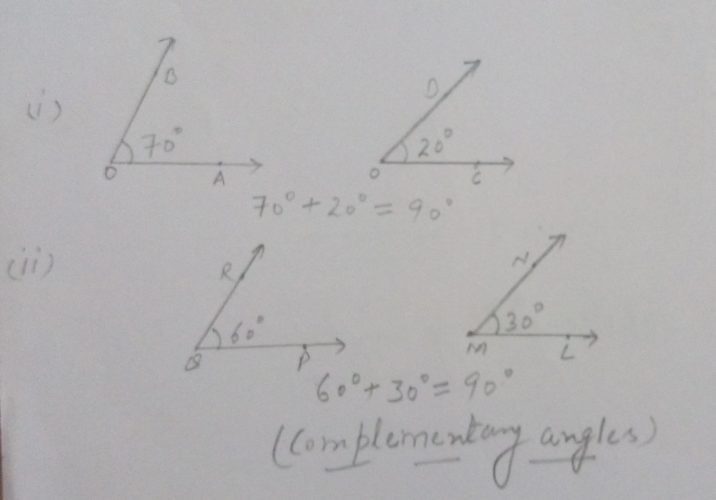 (i)
B
70°
O
A
D
20°
O
C
70° + 20° = 90°
(ii)
R
60°
Q
P
N
30°
M
L
60° + 30° = 90°
(Complementary angles)